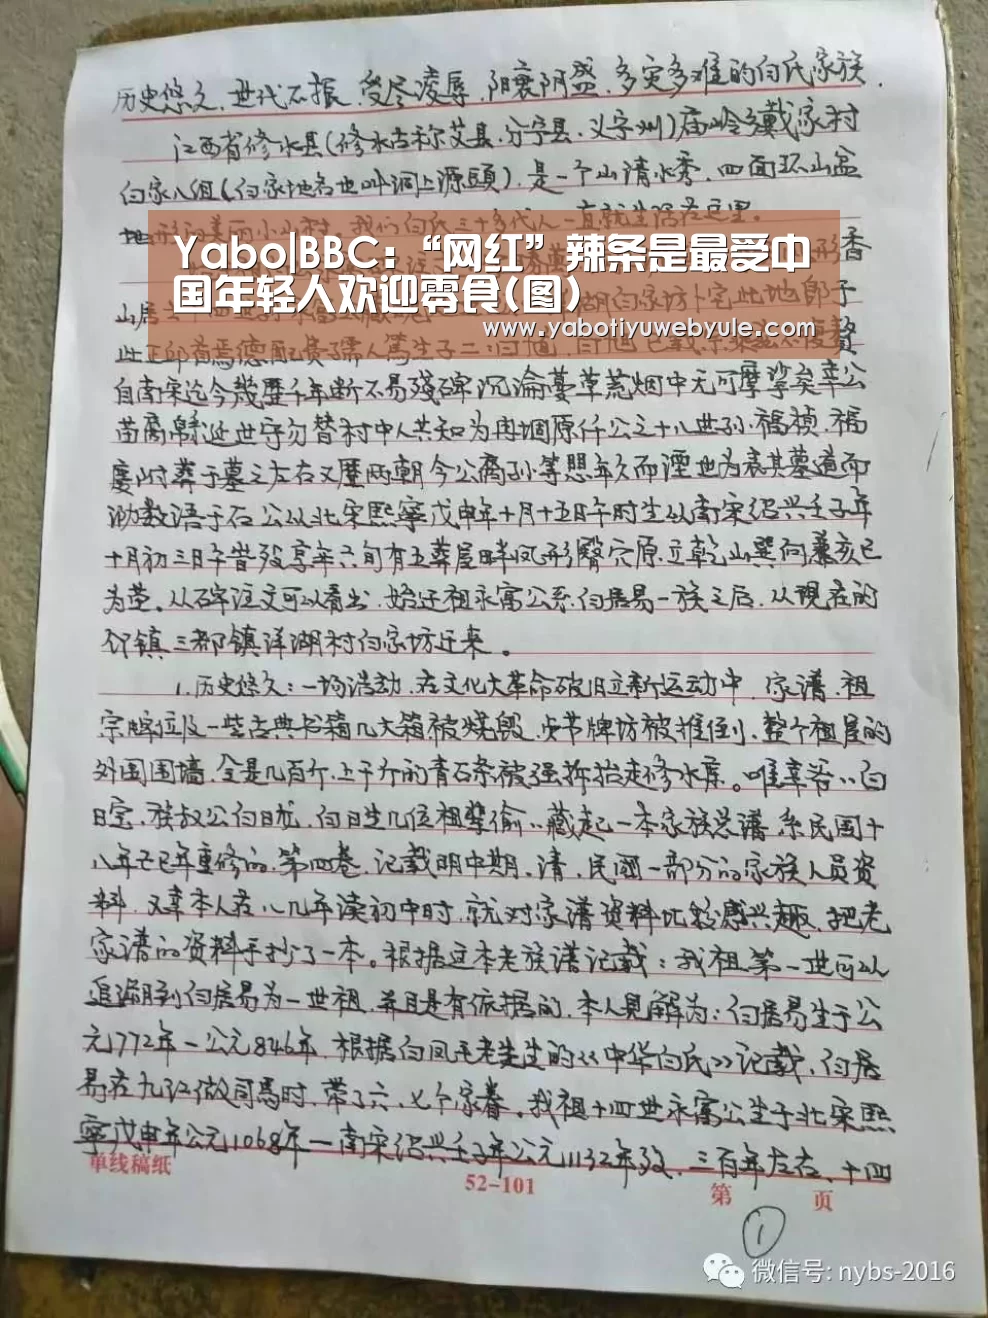 历史悠久，世代不振，受尽凌辱，阳衰阴盛，多灾多难的白氏家族，
江西省修水县(修水古称艾县，分宁县，义宁州)庙岭乡戴家村
白家八组(白家地名也叫洞上源頭)，是一个山清水秀，四面环山盆
地形的美丽小山村。我们白氏三十多代人一直就生活在这里。
Yabo|BBC：“网红”辣条是最受中
国年轻人欢迎零食(图)
www.yabotiyuwebyule.com
自南宋迄今幾歷千年断不易殘碑沉淪蔓草荒烟中无可摩挲矣幸公
苗裔綿延世守勿替村中人共知为再堌原仟公之十八世孙福祯，福
慶附葬于墓之左右又歷两朝今公裔孙等想年久而湮也为表其墓道而
泐数语于石公从北宋熙寧戊申年十月十五日午时生从南宋绍兴壬子年
十月初三日午時殁享年六旬有五葬屋畔凤形臀穴原立乾山巽向兼亥巳
为茔。从碑注文可以看出，始迁祖永寓公系白居易一族之后，从现在的
邻镇三都镇洋湖村白家坊迁来。
1.历史悠久：一场浩劫，在文化大革命破旧立新运动中，家谱，祖
宗牌位及一些古典书籍几大箱被燒毁，贞节牌坊被推倒，整个祖屋的
外围围墙，全是几百斤，上千斤的青石条被强拆抬走修水库。唯幸爷爷白
日宅，族叔公白日龙，白日生几位祖辈偷偷藏起一本家族总谱，系民国十
八年己巳年重修的，第四卷，记载明中期，清，民國一部分的家族人员资
料，又幸本人在八几年读初中时，就对家谱资料比较感兴趣，把老
家谱的资料手抄了一本。根据这本老族谱记载：我祖第一世可以
追溯到白居易为一世祖，并且是有依据的，本人見解为：白居易生于公
元772年－公元846年，根据白凤毛老先生的《中华白氏》记载，白居
易在九江做司馬时，带了六、七个家眷。我祖十四世永寓公生于北宋熙
寧戊申年公元1068年－南宋绍兴壬子年公元1132年殁，三百年左右，十四
单线稿纸
52-101
第 页
1
微信号: nybs-2016